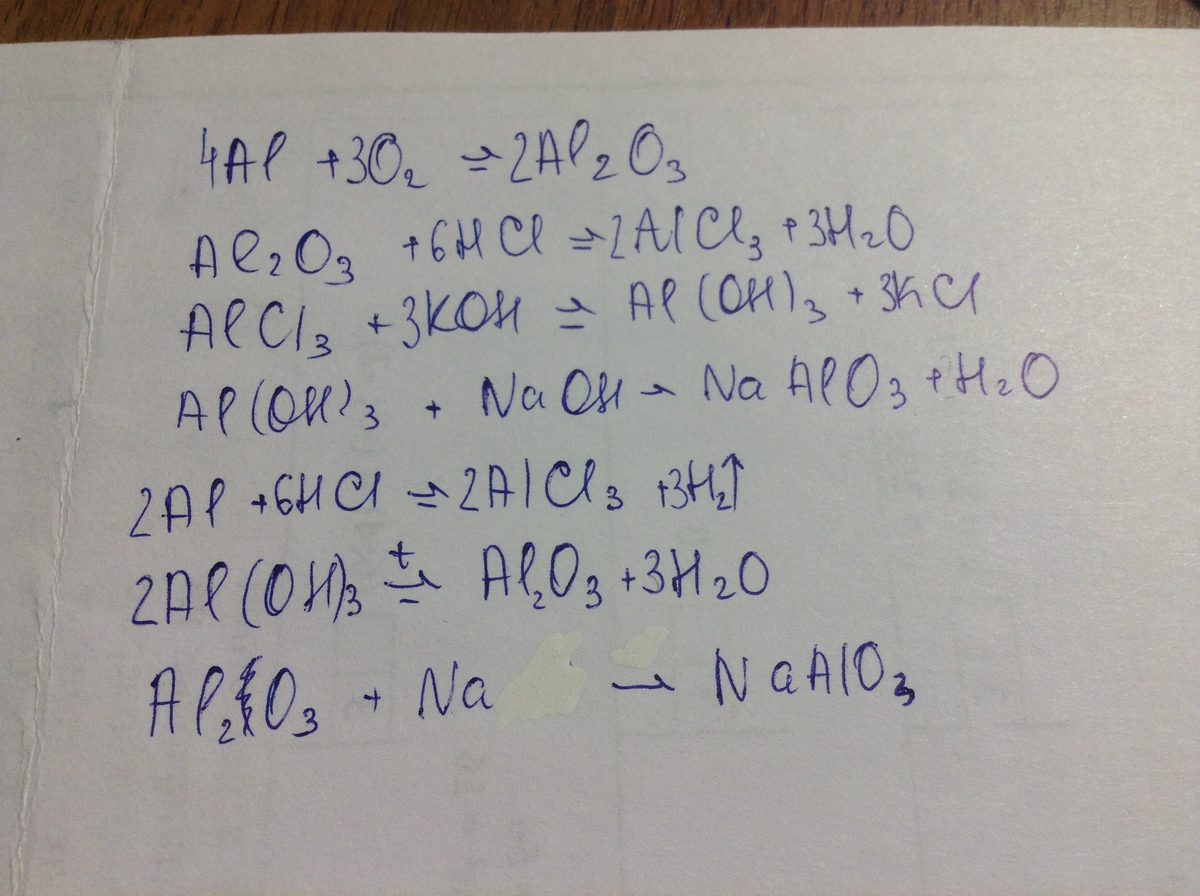 4Al + 3O₂ ⇒ 2Al₂O₃
Al₂O₃ + 6HCl ⇒ 2AlCl₃ + 3H₂O
AlCl₃ + 3KOH ⇒ Al(OH)₃ + 3KCl
Al(OH)₃ + NaOH → NaAlO₃ + H₂O
2Al + 6HCl ⇒ 2AlCl₃ + 3H₂↑
2Al(OH)₃ t⇒ Al₂O₃ + 3H₂O
Al₂O₃ + Na → NaAlO₃